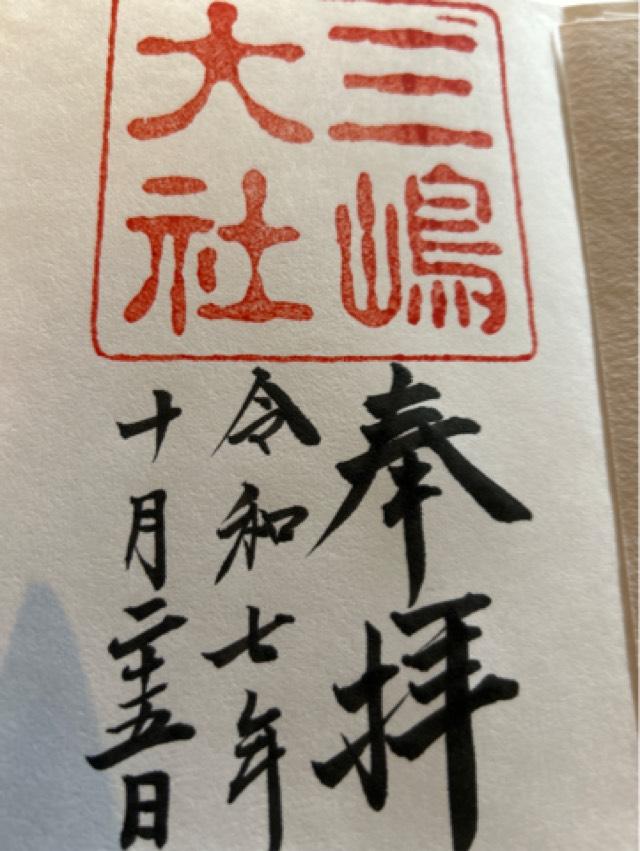 三嶋
大社
奉拝
令和七年
十月二十五日